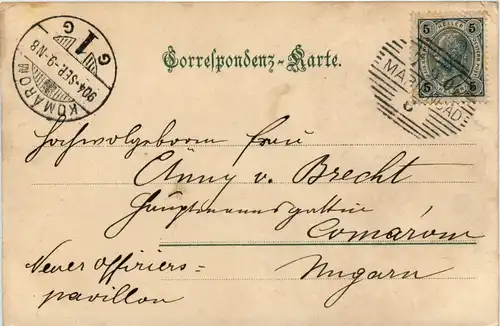 Correspondenz-Karte.
5 HELLER 5
5 5
MARIENBAD
KOMÁROM
904-SEP.-9-N8
G 1 G
Hochwolgeborn Frau
Anny v. Brecht
Hauptmannsgattin
Comárom
Neuer Offiziers=
pavillon
Ungarn